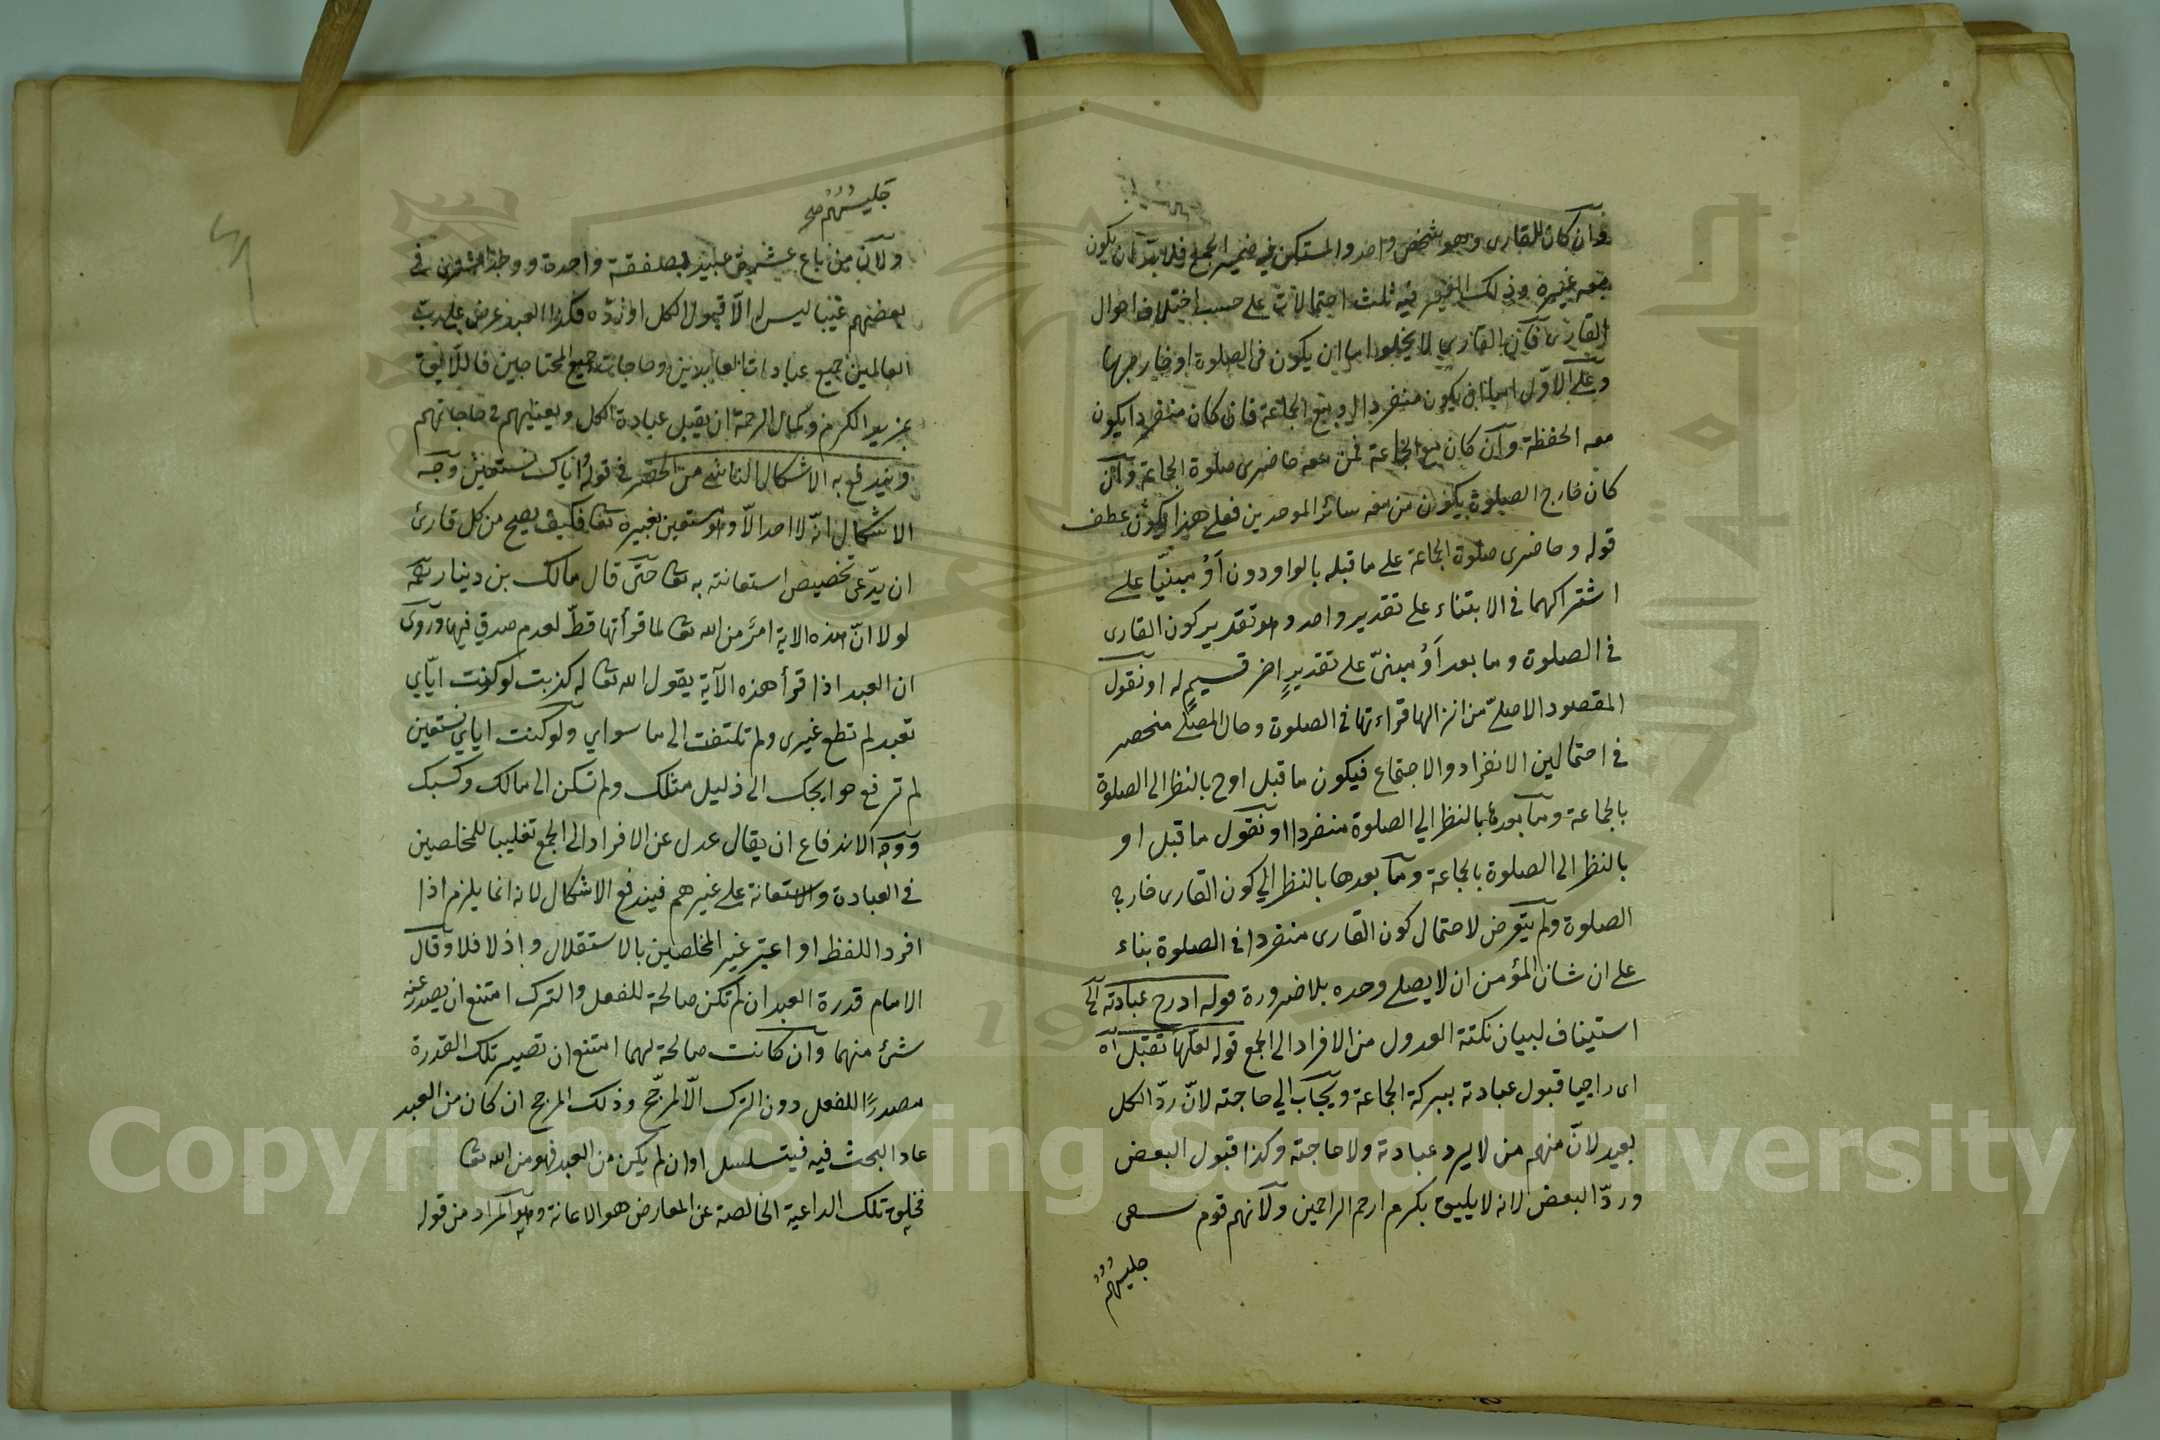 فان كان للقارى وهو شخص واحد والمستكن فيه ضمير الجمع فلابد ان يكون
معه غيره وذلك الغير فيه ثلث احتمالات على حسب اختلاف احوال
القارى فان القارى لا يخلو اما ان يكون فى الصلوة او خارجها
وعلى الاول اما ان يكون منفردا او مع الجماعة فان كان منفردا يكون
معه الحفظة وان كان مع الجماعة فمن معه حاضرى صلوة الجماعة وان
كان خارج الصلوة يكون من معه سائر الموحدين فعلى هذا يكون عطف
قوله وحاضرى صلوة الجماعة على ما قبله بالواو دون أو مبنيا على
اشتراكهما فى الابتناء على تقدير واحد وهو تقدير كون القارى
فى الصلوة وما بعد أو مبنىّ على تقديرٍ اخر قسيم له او نقول
المقصود الاصلىّ من انزالها قراءتها فى الصلوة وحال المصلى منحصر
فى احتمالين الانفراد والاجتماع فيكون ما قبل او ح بالنظر الى الصلوة
بالجماعة وما بعدها بالنظر الى الصلوة منفردا او نقول ما قبل او
بالنظر الى الصلوة بالجماعة وما بعدها بالنظر الى كون القارى خارج
الصلوة ولم يتعرض لاحتمال كون القارى منفردا فى الصلوة بناء
على ان شان المؤمن ان لا يصلى وحده بلا ضرورة قوله ادرج عبادته الخ
استيناف لبيان نكتة العدول من الافراد الى الجمع قوله لعلها تقبل اه
اى راجيا قبول عبادته ببركة الجماعة ويجاب الى حاجته لانّ ردّ الكل
بعيد لانّ منهم من لا يرد عبادته ولا حاجته وكذا قبول البعض
وردّ البعض لانه لا يليق بكرم ارحم الراحمين ولانهم قوم سعى
جليسُهُم
جليسُهُم صح
ولان من باع عشرة عبيد بصفقة واحدة ووجد المشترى فى
بعضهم عيبا ليس له الّا قبول الكل او ردّه فكذا العبد عرض على رب
العالمين جميع عبادات العابدين وحاجات جميع المحتاجين فاللائق
بمزيد الكرم وكمال الرحمة ان يقبل عبادة الكل ويعينهم فى حاجاتهم
ويندفع به الاشكال الناشى من الحصر فى قوله اياك نستعين وجه
الاشكال انّه لا احد الّا وهو مستعين بغيره تعا فكيف يصح من كل قارئ
ان يدّعى تخصيص استعانته به تعا حتّى قال مالك بن دينار رحمه
لولا انّ هذه الاية امرٌ من الله تعا لما قرأتها قطّ لعدم صدقي فيها وروى
ان العبد اذا قرأ هذه الآية يقول الله تعا له كذبت لو كنت ايّاي
تعبد لم تطع غيرى ولم تلتفت الى ما سواي ولو كنت اياي تستعين
لم ترفع حوايجك الى ذليل مثلك ولم تسكن الى مالك وكسبك
ووجه الاندفاع ان يقال عدل عن الافراد الى الجمع تغليبا للمخلصين
فى العبادة والاستعانة على غيرهم فيندفع الاشكال لانه انما يلزم اذا
افرد اللفظ او اعتبر غير المخلصين بالاستقلال وإذ لا فلا وقال
الامام قدرة العبد ان لم تكن صالحة للفعل والترك امتنع ان يصدر عنه
شئ منهما وان كانت صالحة لهما امتنع ان تصير تلك القدرة
مصدرًا للفعل دون الترك الّا لمرجّح وذلك المرجح ان كان من العبد
عاد البحث فيه فيتسلسل او ان لم يكن من العبد فهو من الله تعا
فخلق تلك الداعية الخالصة عن المعارض هو الاعانة وهو المراد من قوله
Copyright © King Saud University